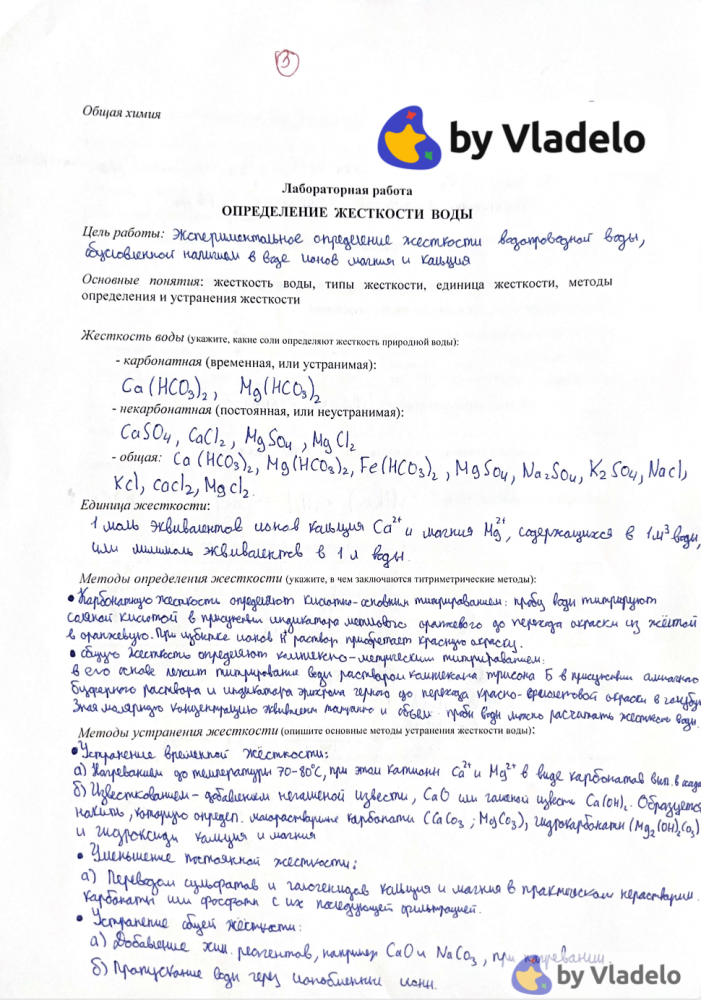 3
Общая химия
by Vladelo
Лабораторная работа
ОПРЕДЕЛЕНИЕ ЖЕСТКОСТИ ВОДЫ
Цель работы: Экспериментальное определение жесткости водопроводной воды,
обусловленной наличием в воде ионов магния и кальция
Основные понятия: жесткость воды, типы жесткости, единица жесткости, методы
определения и устранения жесткости
Жесткость воды (укажите, какие соли определяют жесткость природной воды):
- карбонатная (временная, или устранимая):
Ca(HCO3)2, Mg(HCO3)2
- некарбонатная (постоянная, или неустранимая):
CaSO4, CaCl2, MgSO4, MgCl2
- общая: Ca(HCO3)2, Mg(HCO3)2, Fe(HCO3)2, MgSO4, Na2SO4, K2SO4, NaCl,
KCl, CaCl2, MgCl2.
Единица жесткости:
1 моль эквивалентов ионов кальция Ca²⁺ и магния Mg²⁺, содержащихся в 1 м³ воды,
или миллимоль эквивалентов в 1 л воды.
Методы определения жесткости (укажите, в чем заключаются титриметрические методы):
• Карбонатную жесткость определяют кислотно-основным титрированием: пробу воды титрируют
соляной кислотой в присутствии индикатора метилового оранжевого до перехода окраски из жёлтой
в оранжевую. При избытке ионов H⁺ раствор приобретает красную окраску.
• общую жесткость определяют комплексно-метрическим титрированием:
в его основе лежит титрирование воды раствором комплексона трилона Б в присутствии аммиачного
буферного раствора и индикатора эриохрома черного до перехода красно-фиолетовой окраски в голубую
Зная молярную концентрацию эквивалент титранта и объем пробы воды можно расчитать жесткость воды.
Методы устранения жесткости (опишите основные методы устранения жесткости воды):
• Устранение временной жёсткости:
а) Нагреванием до температуры 70-80°C, при этом катионы Ca²⁺ и Mg²⁺ в виде карбонатов вып. в осадок
б) Известкованием - добавлением негашеной извести, CaO или гашеной извести Ca(OH)2. Образуется
накипь, которую определ. малорастворимые карбонаты (CaCO3; MgCO3), гидрокарбонаты (Mg2(OH)2CO3)
и гидроксиды кальция и магния
• Уменьшение постоянной жесткости:
а) Переводом сульфатов и галогенидов кальция и магния в практически нерастворим.
карбонаты или фосфаты с их последующей фильтрацией.
• Устранение общей жёсткости:
а) Добавление хим. реагентов, например CaO и NaCO3, при нагревании.
б) Пропускание воды через ионообменные
by Vladelo